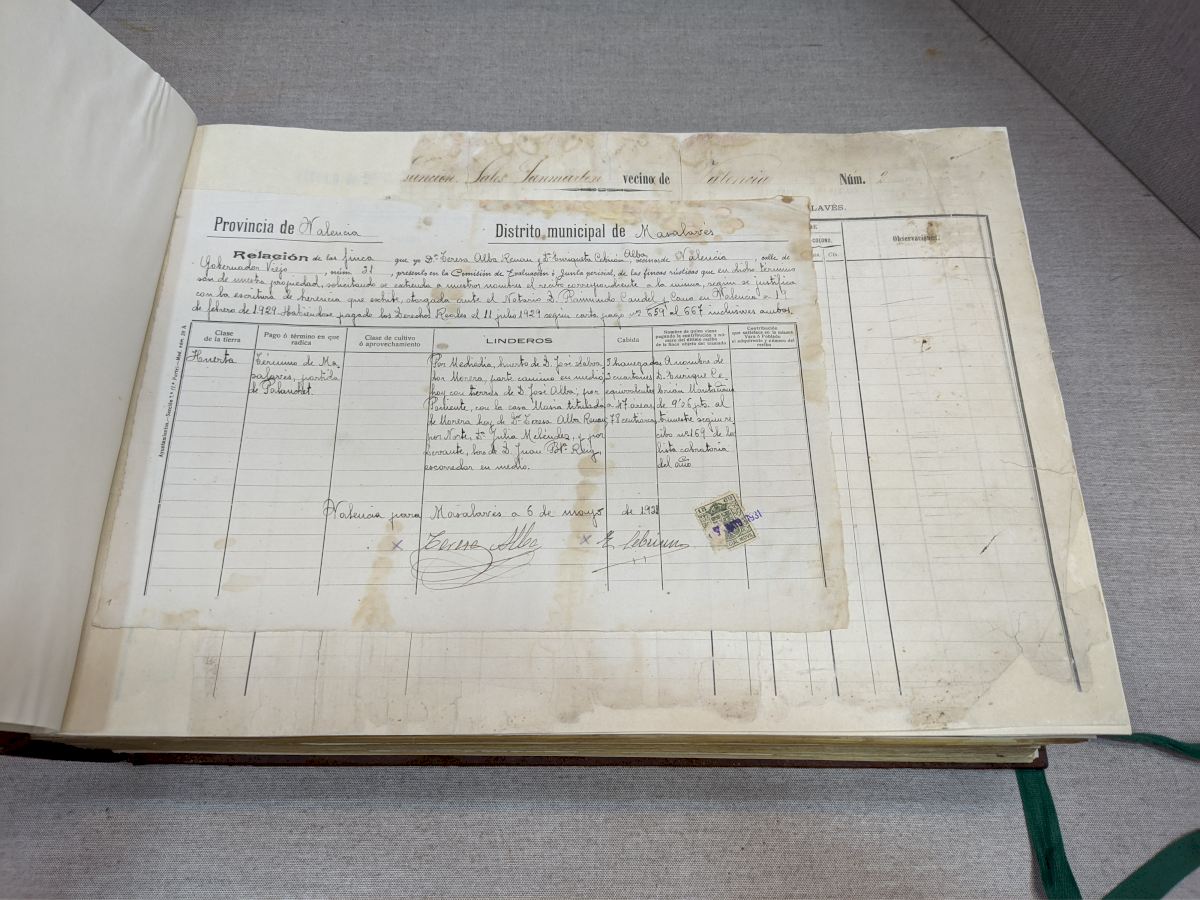 Sales Sanmartín vecino de Valencia Núm. 2
LAVÉS.
COLONO.
Cts.
Observaciones.
Provincia de Valencia Distrito municipal de Masalavés
Relación de las finca que yo Dª Teresa Alba Renau y Dª Enriqueta Cebrián Alba, vecinas de Valencia, calle de
Gobernador Viejo, núm 31, presento en la Comisión de Evaluación ó Junta pericial, de las fincas rústicas que en dicho término
son de nuestra propiedad, solicitando se extienda a nuestro nombre el recibo correspondiente a la misma, según se justifica
con la escritura de herencia que exhibe, otorgada ante el Notario D. Raimundo Caudel y Cano en Valencia a 19
de febrero de 1929. Habiéndose pagado los Derechos Reales el 11 julio 1929 según carta pago nº 659 al 667 inclusives ambos.
Clase de la tierra
Pago ó término en que radica
Clase de cultivo ó aprovechamiento
LINDEROS
Cabida
Nombre de quien viene pagando la contribución y número del último recibo de la finca objeto del traslado
Contribución que satisface en la misma Vara ó Poblado el adquirente y número del recibo
Huerta
Término de Ma-
salavés, partida
de Palanchet.
Por Mediodía, huerto de D. José
Morera, parte camino en medio,
hoy con tierras de D. José Alba; por
Poniente, con la casa Musia titulada
de Morera, hoy de Dª Teresa Alba Renau,
por Norte, Dª Julia Meléndez, y por
Levante, los de D. Juan Btª Ruiz,
escorredor en medio.
5 hanegadas
3 cuartones
equivalentes
a 47 áreas
78 centiáreas
A nombre de
D. Enrique Ce-
brián Montañana
de 9'06 pts. al
trimestre según re-
cibo nº 169 de la
lista cobratoria
del año
Valencia para Masalavés a 6 de mayo de 1931
Teresa Alba E. Cebrián
1931